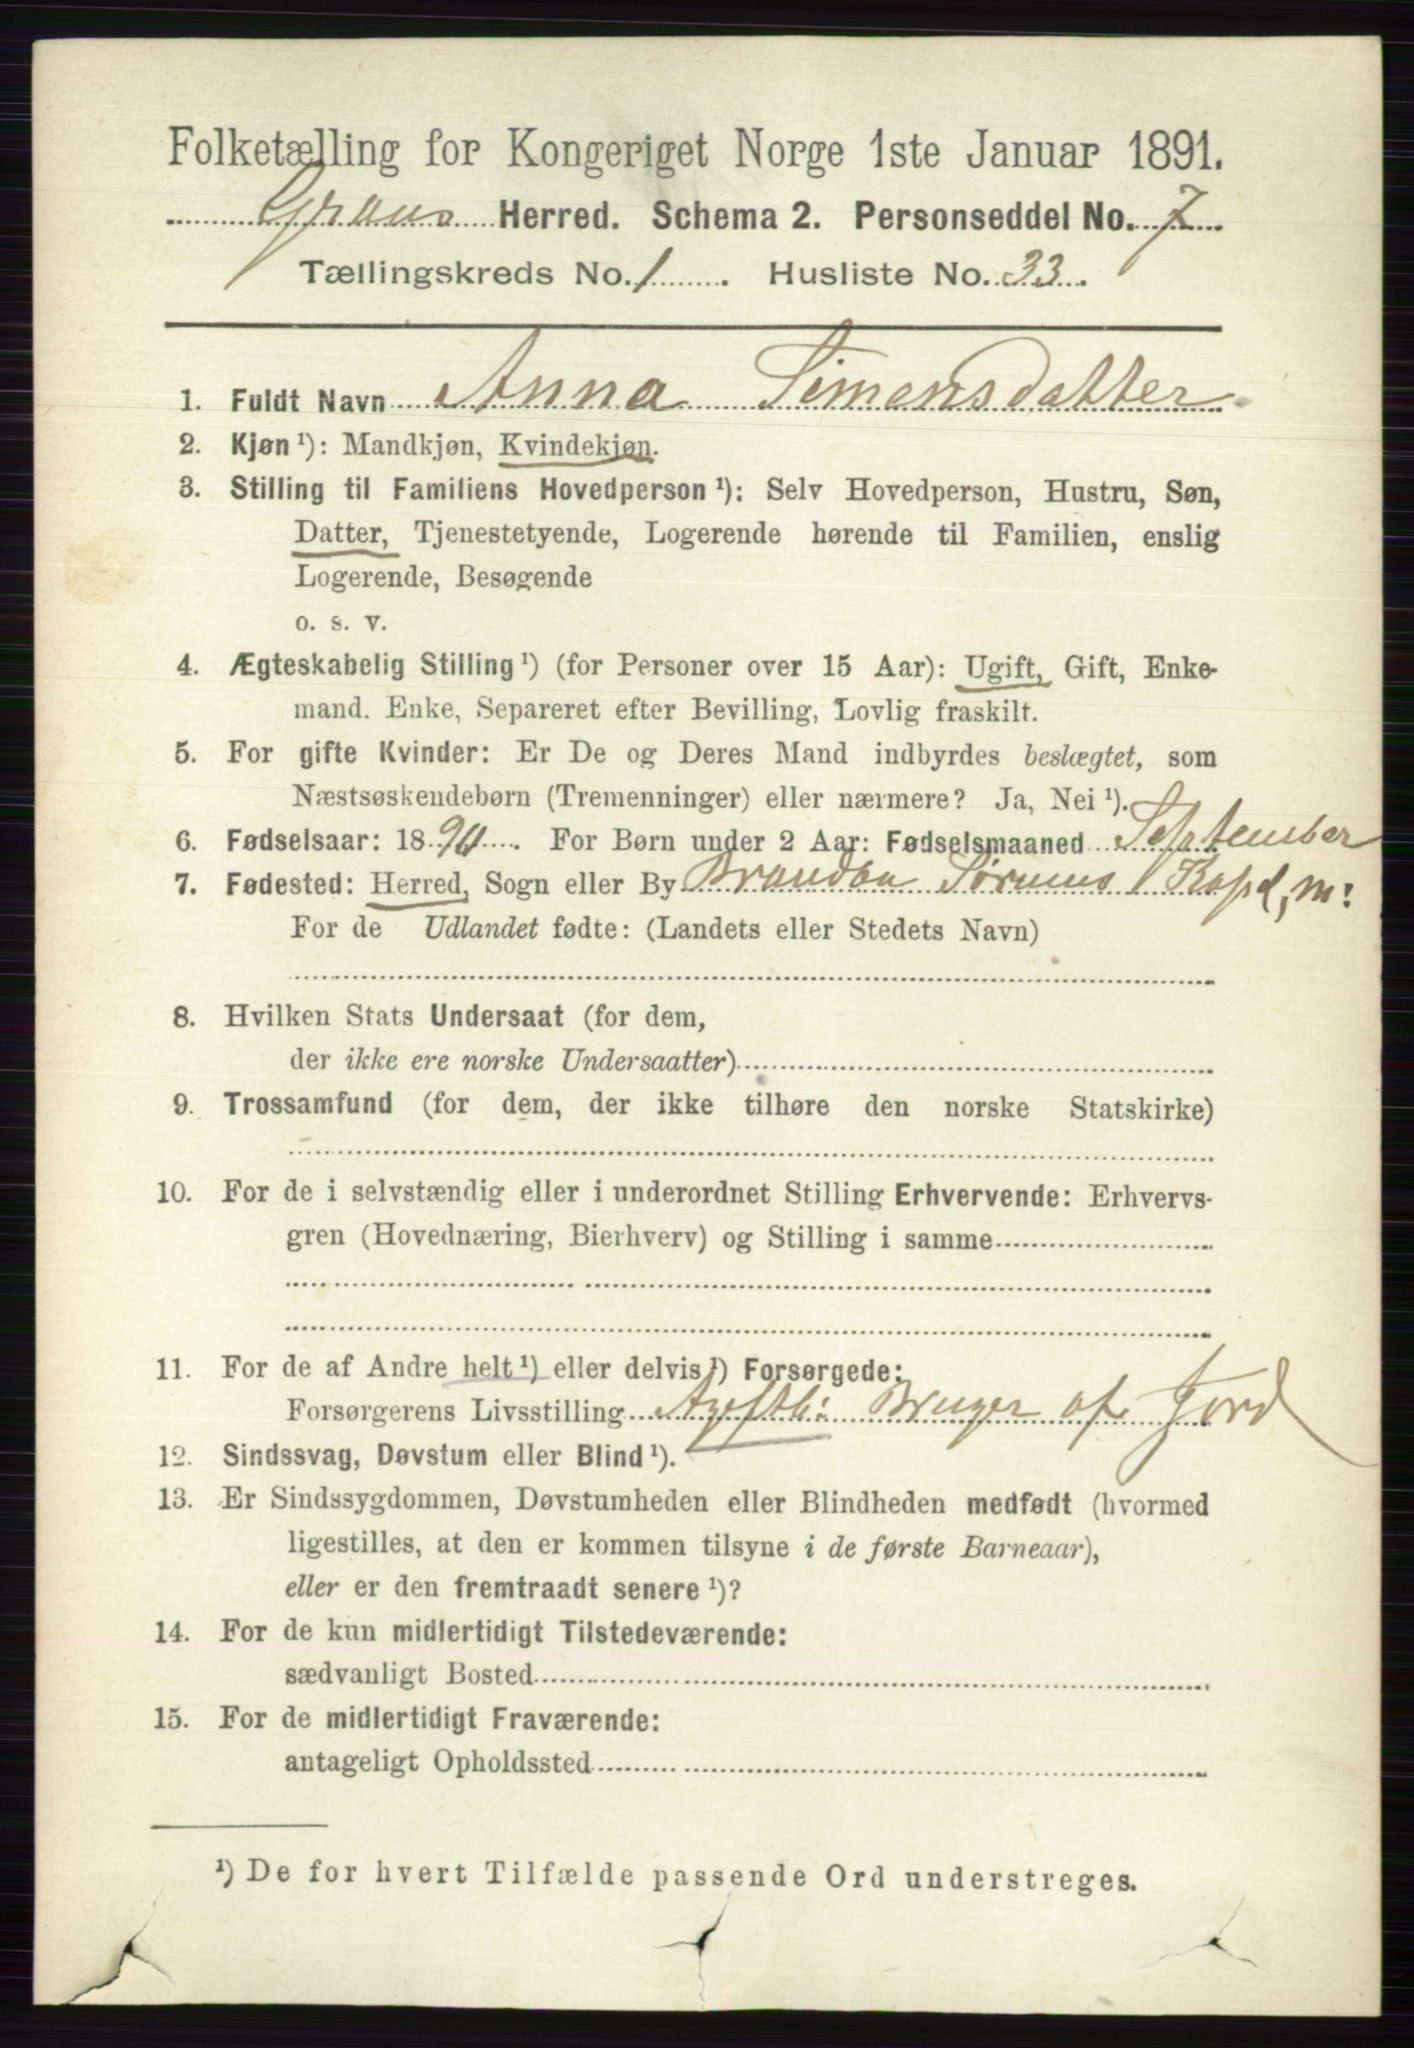 Folketælling for Kongeriget Norge 1ste Januar 1891.
Grans Herred. Schema 2. Personseddel No. 7
Tællingskreds No. 1. Husliste No. 33.
1. Fuldt Navn Anna Simensdatter
2. Kjøn ¹): Mandkjøn, Kvindekjøn.
3. Stilling til Familiens Hovedperson ¹): Selv Hovedperson, Hustru, Søn,
Datter, Tjenestetyende, Logerende hørende til Familien, enslig
Logerende, Besøgende
o. s. v.
4. Ægteskabelig Stilling ¹) (for Personer over 15 Aar): Ugift, Gift, Enke-
mand. Enke, Separeret efter Bevilling, Lovlig fraskilt.
5. For gifte Kvinder: Er De og Deres Mand indbyrdes beslægtet, som
Næstsøskendebørn (Tremenninger) eller nærmere? Ja, Nei ¹).
6. Fødselsaar: 1890. For Børn under 2 Aar: Fødselsmaaned September
7. Fødested: Herred, Sogn eller By Brandbu Sørums
For de Udlandet fødte: (Landets eller Stedets Navn)
8. Hvilken Stats Undersaat (for dem,
der ikke ere norske Undersaatter)
9. Trossamfund (for dem, der ikke tilhøre den norske Statskirke)
10. For de i selvstændig eller i underordnet Stilling Erhvervende: Erhvervs-
gren (Hovednæring, Bierhverv) og Stilling i samme
11. For de af Andre helt ¹) eller delvis ¹) Forsørgede:
Forsørgerens Livsstilling Bruger af Jord
12. Sindssvag, Døvstum eller Blind ¹).
13. Er Sindssygdommen, Døvstumheden eller Blindheden medfødt (hvormed
ligestilles, at den er kommen tilsyne i de første Barneaar),
eller er den fremtraadt senere ¹)?
14. For de kun midlertidigt Tilstedeværende:
sædvanligt Bosted
15. For de midlertidigt Fraværende:
antageligt Opholdssted
¹) De for hvert Tilfælde passende Ord understreges.